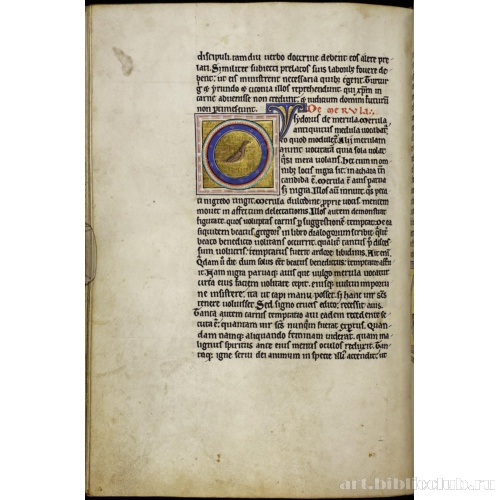 discipuli. tamdiu uerbo doctrine debent eos alere pre
lati. Similiter subiecti prelatos suis laborib; fouere de
bent: ut eis ministrent necessaria quibz egent. Turtur
g̃ & yrundo & ciconia illos reprehendunt qui xp̃m in
carne aduenisse non credunt. & iudicium domini futurũ
non pertimescunt. De MERULA.
ysydorus de merula. Merula
antiquitus medula uocabat̃
eo quod moduletˀ. Alij merulam
aiunt uocitatã quia sola uolat
qͣsi mera uolans. Hec cum in om
nibz locis nigra sit. in achaia tñ
candida ẽ. Merula ẽ auis parua
sꝫ nigra. Illos aũt
ti nigredo tingit. Merula dulcedine proprie uocis mentem
mouet in affectum delectationis. Illos autem demonstrat
figurate. quos uoluptas carnis ꝑ suggestionẽ temptat. De ea
siquidem beatus gregori in libro dialogorum scribit.
beato benedicto uolitans occurrit. qualit̃ tantus ꝑ disces
sum uolucris. temptatus fuerit ardore libidinis. Ait enĩ.
Qdam ũ die dum solus eẽt beatus benedictus: temptator affu
it. Nam nigra paruaqꝫ auis que uulgo merula uocatur
circa eius faciem uolitare cepit. eiusqꝫ uultui importu
ne insistere. ita ut capi manu posset. si hanc uir sc̃s
tenere uoluisset. Sed signo crucis edito: recessit auis.
Tanta autem carnis temptatio aui eadem recedente se
cuta ẽ. quantam uir sc̃s nunqͣm fuerat exꝑtus. Quan
dam namqꝫ aliquando feminam uiderat. quam ma
lignus spiritus ante eius mentis oculos reduxit. Tan
toqꝫ igne serui dei animum in specie illiˀ accendit. ut
art.biblioclub.ru